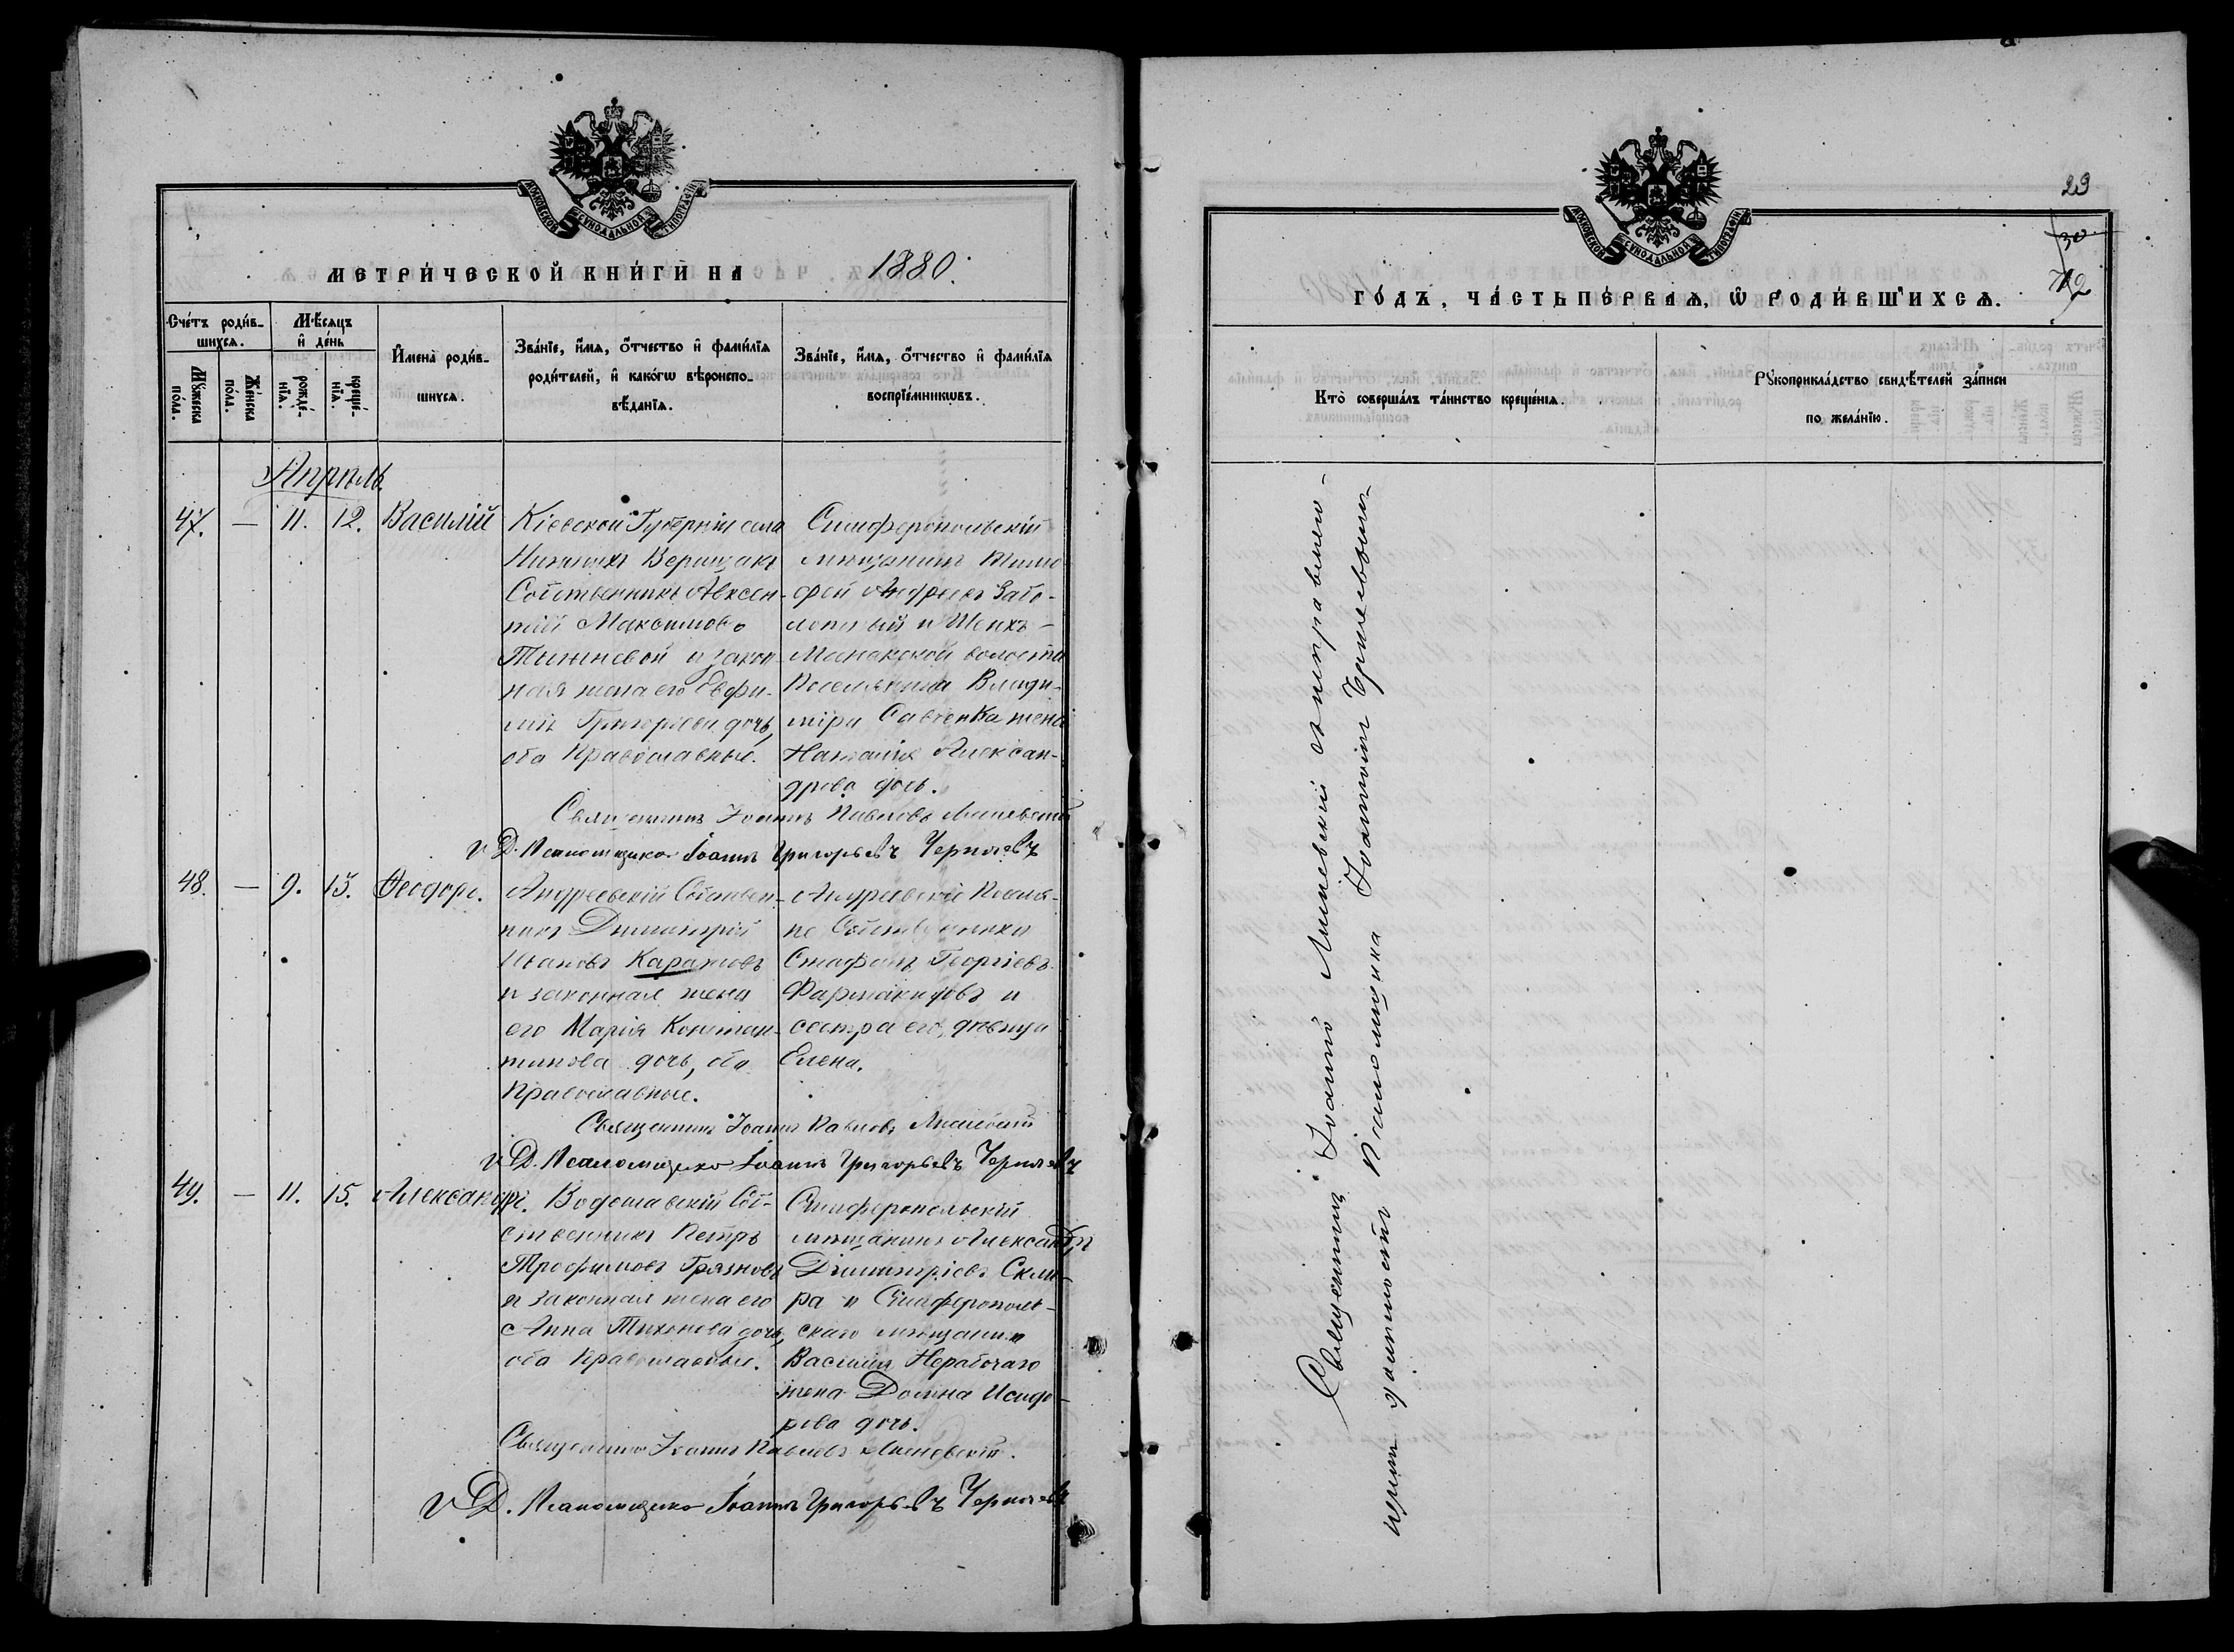 МОСКОВСКОЙ СУНОДАЛЬНОЙ ТИПОГРАФІИ
МЕТРИ́ЧЕСКОЙ КНИ́ГИ НА 1880.
Сче́тъ роди́в-
шихсѧ.
Мѣ́сѧцъ
и҆ де́нь
Мꙋ́жеска
по́ла.
Же́нска
по́ла.
рожде́-
нїѧ.
креще́-
нїѧ.
И҆мена̀ роди́в-
шихсѧ.
Зва́нїе, и҆́мѧ, ѻ҆́тчество и҆ фами́лїѧ
роди́телей, и҆ како́гѡ вѣроиспо-
вѣ́данїѧ.
Зва́нїе, и҆́мѧ, ѻ҆́тчество и҆ фами́лїѧ
воспрїе́мникѡвъ.
Апрѣль.
47. — 11. 12. Василій
Кіевской Губерніи села
Собственникъ Авксен-
тій Максимовъ
и закон-
ная жена его Евфи-
мія Григоріева дочь,
оба Православные.
Симферопольскій
мѣщанинъ Тимо-
фей Андреевъ Забо-
лотный и Шейхъ-
Манакской волости
Поселянина Влади-
міра Савченка жена
Наталія Алексан-
дрова дочь.
Священникъ Іоаннъ Павловъ
и Д. Псаломщика Іоаннъ Григорьевъ Чернявъ
48. — 9. 13. Ѳеодоръ.
Андреевскій Собствен-
никъ Димитрій
Ивановъ Карановъ
и законная жена
его Марія Констан-
тинова дочь, оба
Православные.
Андреевскіе Поселя-
не Собственники
Стафанъ Георгіевъ
Фармакидовъ и
сестра его, дѣвица
Елена.
Священникъ Іоаннъ Павловъ
и Д. Псаломщика Іоаннъ Григорьевъ Чернявъ
49. — 11. 15. Александръ.
Богославскій Соб-
ственникъ Петръ
Трофимовъ Грязновъ
и законная жена его
Анна Тихонова дочь,
оба Православные.
Симферопольскій
мѣщанинъ Александръ
Димитріевъ Скля-
ра и Симферополь-
скаго мѣщанина
Василія Нерабочаго
жена Домна Исидо-
рова дочь.
Священникъ Іоаннъ Павловъ
и Д. Псаломщика Іоаннъ Григорьевъ Чернявъ
МОСКОВСКОЙ СУНОДАЛЬНОЙ ТИПОГРАФІИ
29
30
ГО́ДЪ, ЧА́СТЬ ПЕ́РВАѦ, Ѡ҆ РОДИ́ВШИХСѦ.
Кто̀ соверша́лъ та́инство креще́нїѧ.
Рꙋкоприкла́дство свидѣ́телей за́писи
по жела́нїю.
Священникъ Іоаннъ съ исправляю-
щимъ должность Псаломщика Іоанномъ